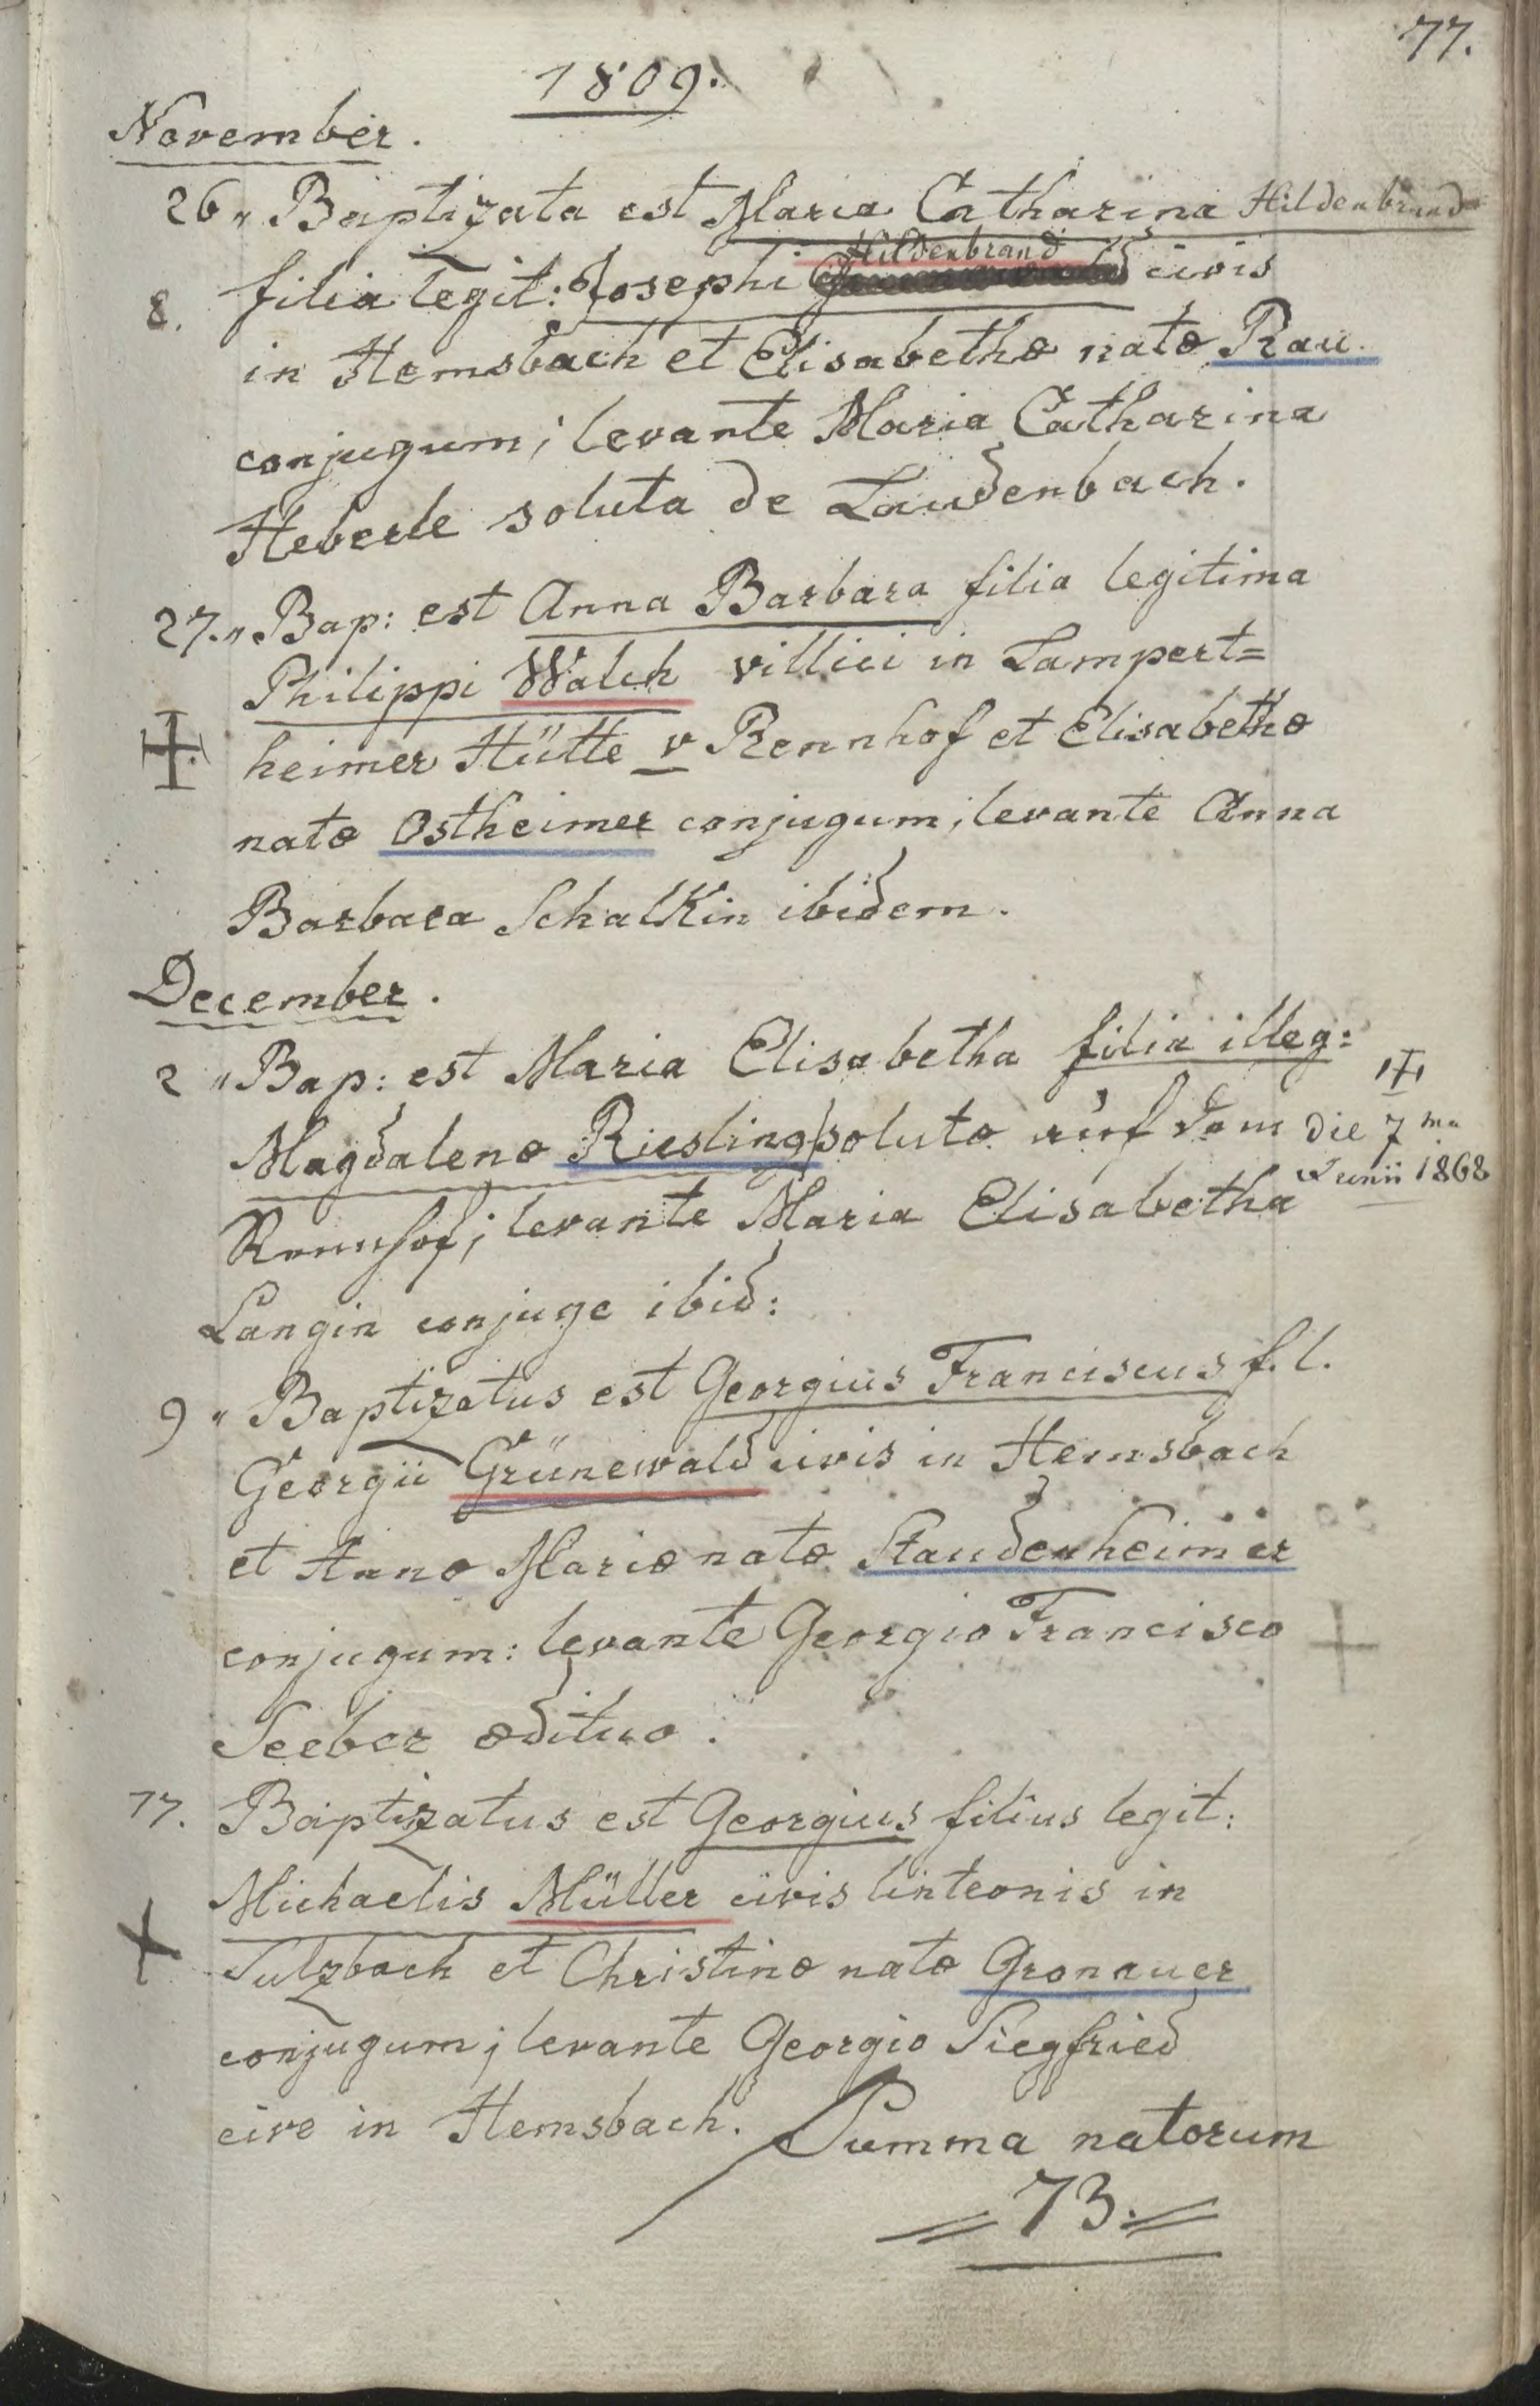 77.
1809.
November.
26 „ Baptizata est Maria Catharina Hildenbrand
Hildenbrand
8. filia legit: Josephi civis
in Hemsbach et Elisabethæ natæ Rau.
conjugum; levante Maria Catharina
Heberle soluta de Laudenbach.
27. „ Bap: est Anna Barbara filia legitima
Philippi Walch villici in Lampert=
heimer Hütte v Rennhof et Elisabethæ
natæ Ostheimer conjugum; levante Anna
Barbara Schalkin ibidem.
December.
2 „ Bap: est Maria Elisabetha filia illeg:
Magdalenæ Riesling solutæ auf dem die 7 ma
Junii 1868
Rennhof; levante Maria Elisabetha
Langin conjuge ibid:
9 „ Baptizatus est Georgius Franciscus f. l.
Georgii Grünewald civis in Hemsbach
et Annæ Mariæ natæ Staudenheimer
conjugum: levante Georgio Francisco
Seeber ædituo.
17. Baptizatus est Georgius filius legit:
Michaelis Müller civis linteonis in
Sulzbach et Christinæ natæ Gronauer
conjugum; levante Georgio Siegfried
cive in Hemsbach. Summa natorum
= 73. =